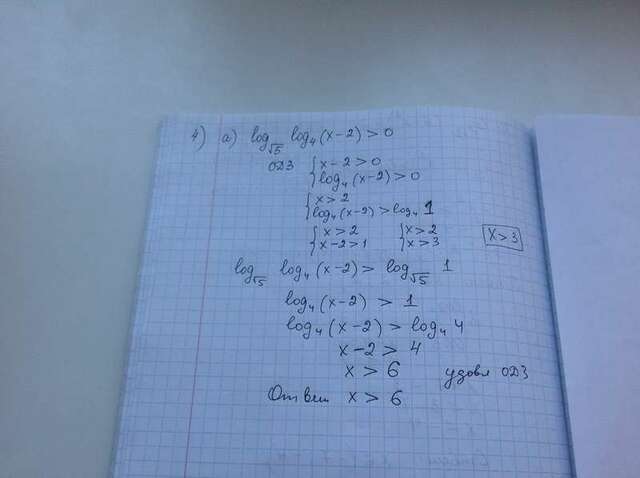 4) а) log√5 log4(x-2) > 0
ОДЗ { x-2 > 0
log4(x-2) > 0
{ x > 2
log4(x-2) > log4 1
{ x > 2 { x > 2
x-2 > 1 x > 3 x > 3
log√5 log4(x-2) > log√5 1
log4(x-2) > 1
log4(x-2) > log4 4
x-2 > 4
x > 6 удовл ОДЗ
Ответ x > 6